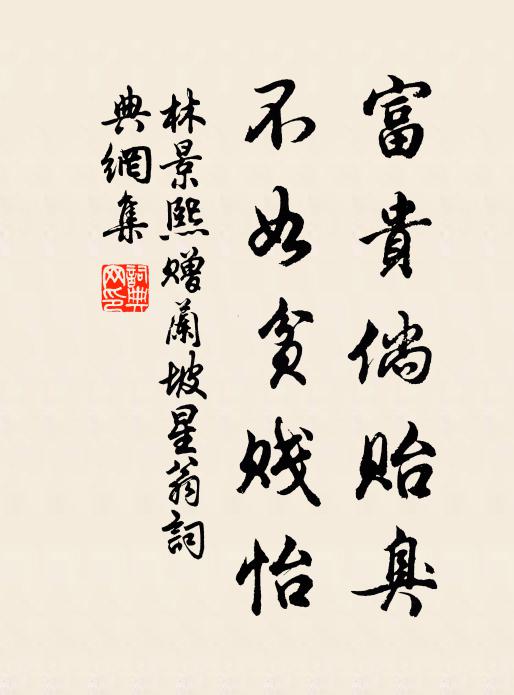 富貴倘貽臭
不如貧賤怡
林景熙贈蘭坡星翁詞
典網集
詞典
网印